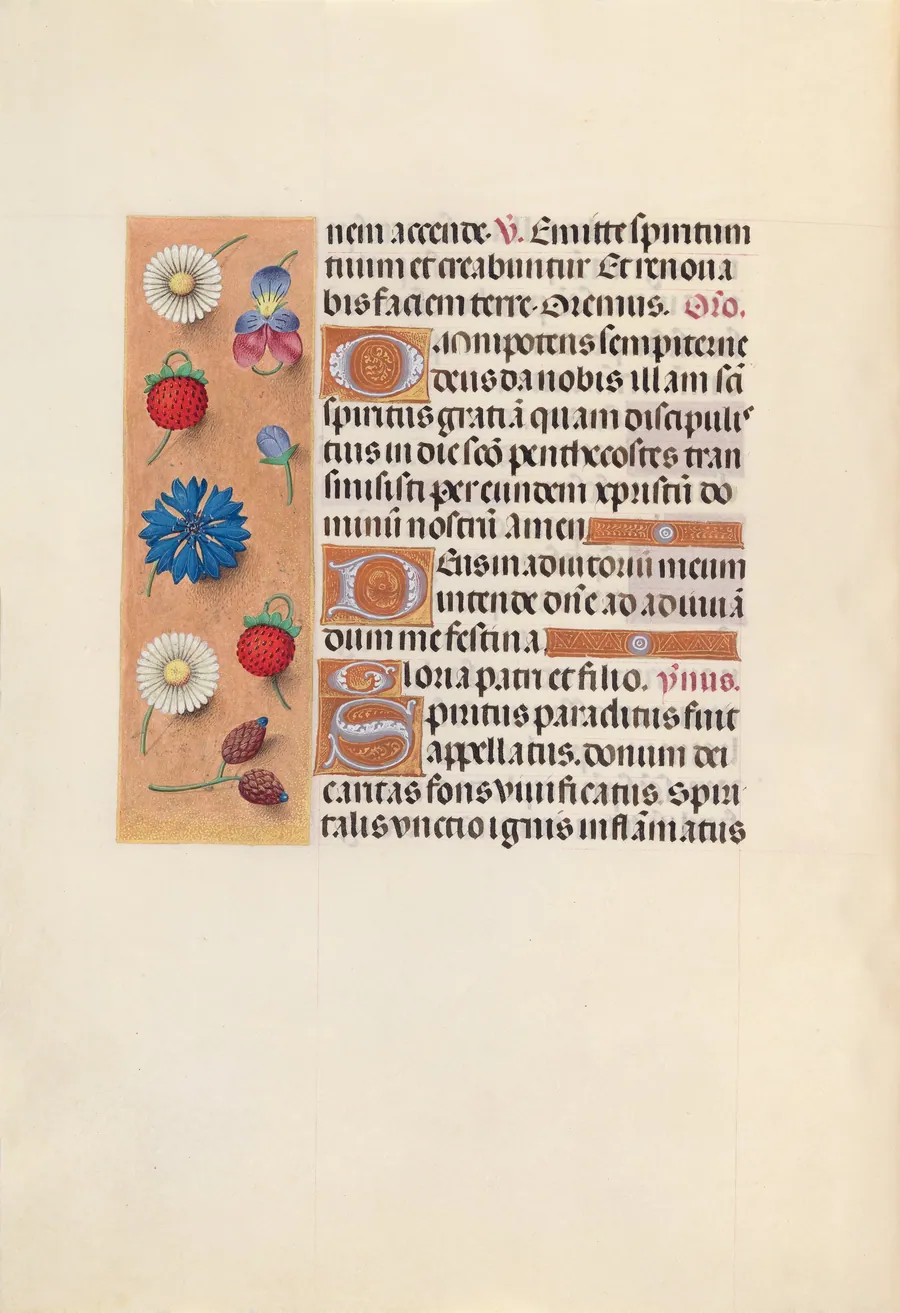 nem accende. V̄. Emitte spiritum
tuum et creabuntur Et renoua
bis faciem terre. Oremus. Or̄o.
Omnipotens sempiterne
deus da nobis illam sc̄i
spiritus gratiā quam discipulis
tuis in die scō penthecostes tran
smisisti per eundem xpristū do
minū nostrū Amen
Deus in adiutoriū meum
intende dn̄e ad adiuuā
dum me festina.
Gloria patri et filio. ymnus.
Spiritus paraclitus fuit
appellatus. donum dei
caritas fons viuificatus. spiri
talis vnctio ignis inflāmatus